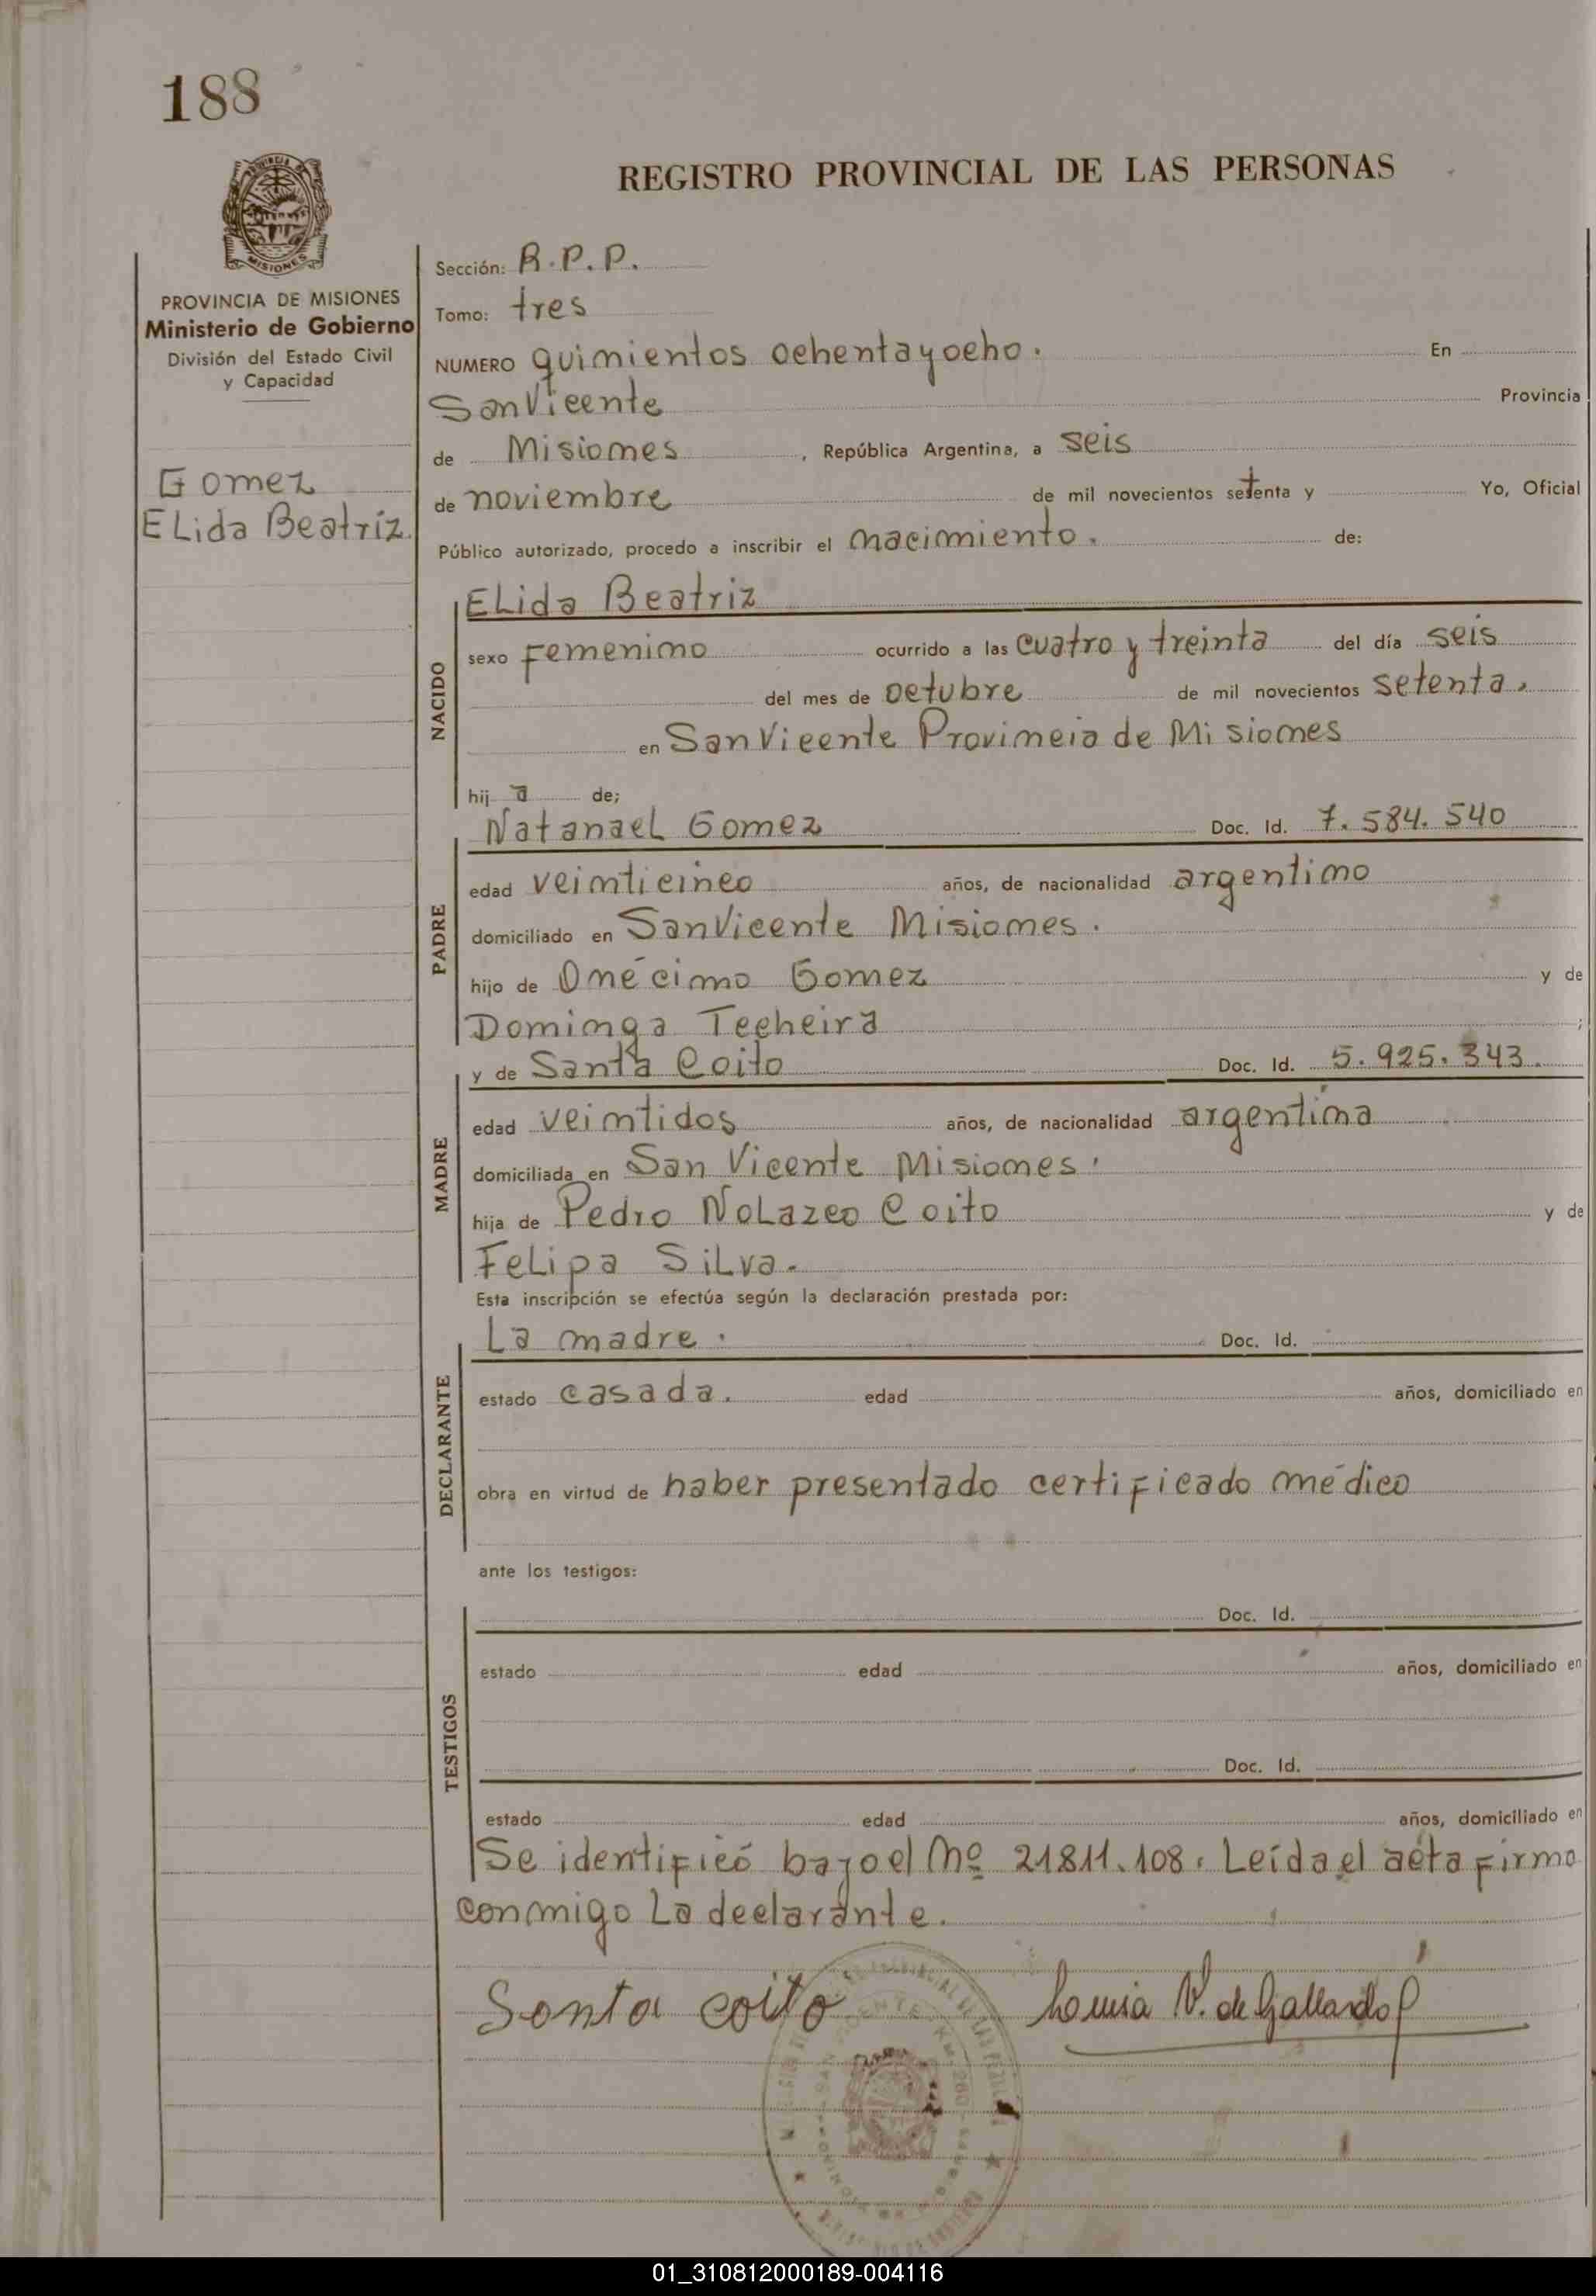 188
REGISTRO PROVINCIAL DE LAS PERSONAS
MISIONES
PROVINCIA DE MISIONES
Ministerio de Gobierno
División del Estado Civil
y Capacidad
Gomez
ELida Beatríz.
Sección: R.P.P.
Tomo: tres
NUMERO quinientos ochentayocho. En
SanVicente Provincia
de Misiones, República Argentina, a seis
de noviembre de mil novecientos setenta y Yo, Oficial
Público autorizado, procedo a inscribir el nacimiento. de:
NACIDO
ELida Beatriz
sexo Femenino ocurrido a las cuatro y treinta del día seis
del mes de octubre de mil novecientos setenta.
en SanVicente Provincia de Misiones
hij a de;
PADRE
NatanaeL Gomez Doc. Id. 7.584.540
edad veinticinco años, de nacionalidad argentino
domiciliado en SanVicente Misiones.
hijo de Onécimo Gomez y de
Dominga Techeira ;
MADRE
y de Santa Coito Doc. Id. 5.925.343.
edad veintidos años, de nacionalidad argentina
domiciliada en San Vicente Misiones.
hija de Pedro NoLazco Coito y de
FeLipa SiLva.
Esta inscripción se efectúa según la declaración prestada por:
DECLARANTE
La madre. Doc. Id.
estado casada. edad años, domiciliado en
obra en virtud de haber presentado certificado médico
ante los testigos:
TESTIGOS
Doc. Id.
estado edad años, domiciliado en
Doc. Id.
estado edad años, domiciliado en
Se identificó bajo el Nº 21811.108. Leída el acta firma
conmigo La declarante.
Santa coito
V. de Gallardo
01_310812000189-004116